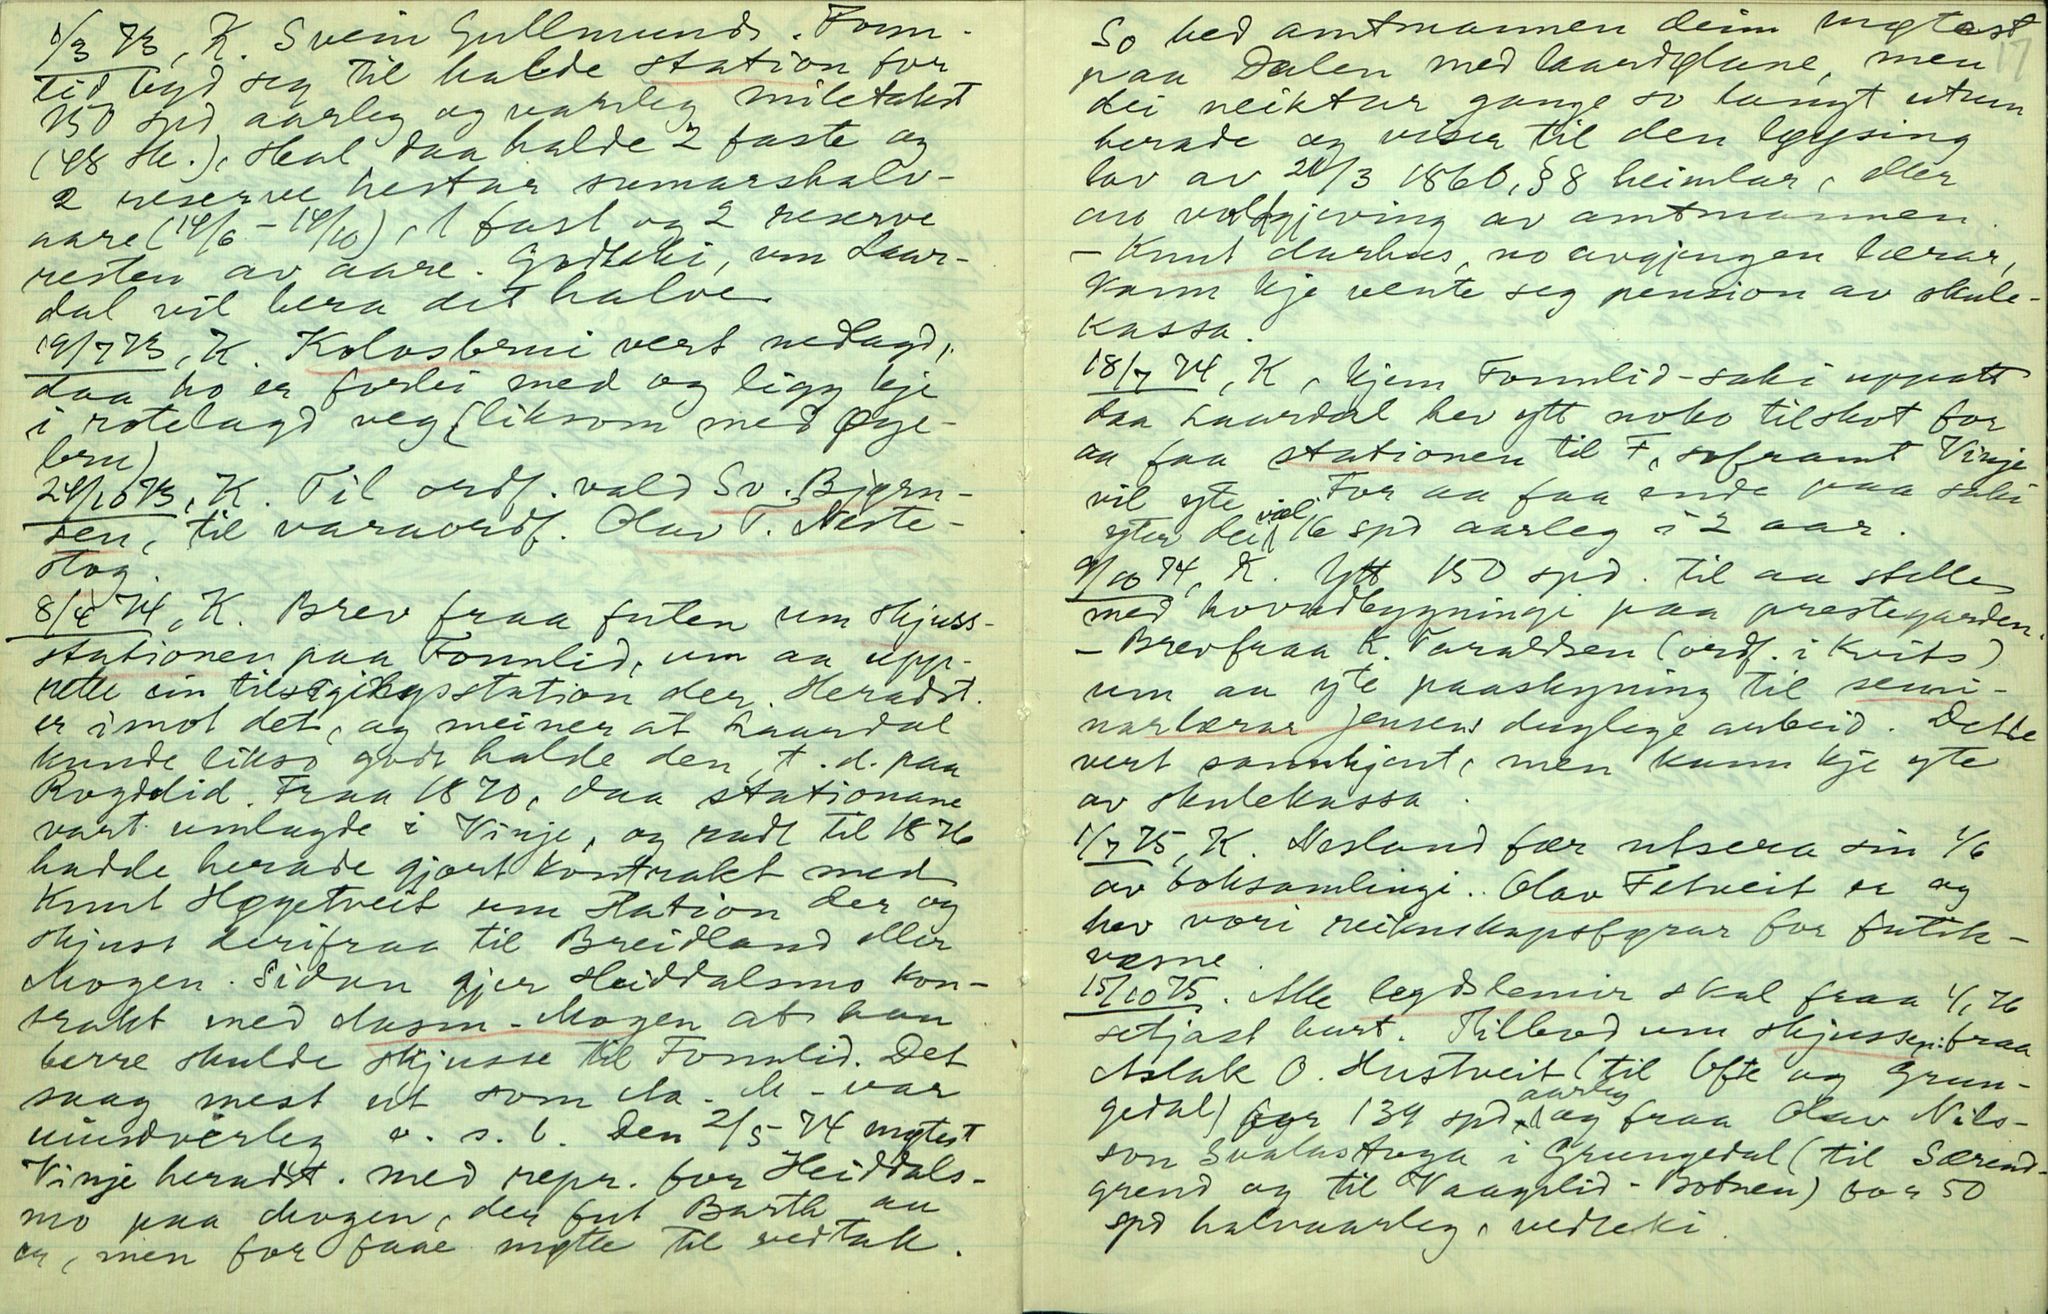 1/3 73, K. Svein Gullmunds. Fonn-
lid byd seg til halde station for
150 spd aarleg og vanleg miletakst
(48 sk.), skal daa halde 2 faste og
2 reserve hestar sumarshalv-
aare (14/6 - 14/10), 1 fast og 2 reserve
resten av aare. Godteki, um Laur-
dal vil bera det halve
19/7 73, K. Kolosbrui vert nedlagd,
daa ho er forlei med og ligg kje
i rotelagd veg (liksom med Øye-
bru)
24/10 73, K. Til ordf. vald Sv. Bjørn-
sen, til varaordf. Olav T. Neste-
stog.
8/4 74, K. Brev fraa futen um skjuss-
stationen paa Fonnlid, um aa upp-
rette ein tilsigilsgsstation der. Heradst.
er imot det, og meiner at Laurdal
kunde likso godt halde den, t. d. paa
Roydlid. Fraa 1870, daa stationane
vart umlagde i Vinje, og radt til 1876
hadde herade gjort kontrakt med
Knut Høgetveit um station der og
skjuss derifraa til Breidland eller
Mogen. Sidan gjer Heiddalsmo kon-
trakt med Aasm. Mogen at han
berre skulde skjusse til Fonnlid. Det
saag mest ut som Aa. M. var
uimdverleg o. s. b. Den 2/5 74 møtest
Vinje heradst. med repr. for Heiddals-
mo paa Mogen, der fut Barth au
er, men for faae møtte til vedtak.
So bed amtmannen deim møtast
17
paa Dalen med laurdølane, men
dei neiktar gange so langt utum
herade og viser til den løysing
lov av 21/3 1860, § 8 heimlar, eller
au voldgjeving av amtmannen
- Knut Aarhus, no avgjengen lærar,
kann kje vente seg pension av skule-
kassa.
18/7 74, K, kjem Fonnlid-saki uppatt
daa Laurdal hev ytt noko tilskot for
aa faa stationen til F, soframt Vinje
vil yte. For aa faa ende paa saki
yter dei vel 16 spd aarleg i 2 aar.
9/10 74, K. Ytt 150 spd. til aa stelle
med hovudbygningi paa prestegarden.
- Brev fraa K. Taraldsen (ordf. i Kvits)
um aa yte paaskyning til semi-
narlærar Jensens duglege arbeid. Dette
vert sannkjent, men kann kje yte
av skulekassa.
1/7 75, K. Nesland fær utsera sin 1/6
av boksamlingi. Olav Fetveit er og
hev vori reiknskapsførar for fatik-
væsne.
15/10 75. Alle legdslemir skal fraa 1/1 76
setjast burt. Tilbod um skjussen: fraa
Aslak O. Hustveit (til Ofte og Grun-
gedal) for 139 spd aarleg og fraa Olav Nils-
son Svalastoga i Grungedal (til Særend-
grend og til Vaagslid - Botnen) for 50
spd halvaarleg, vedteki.